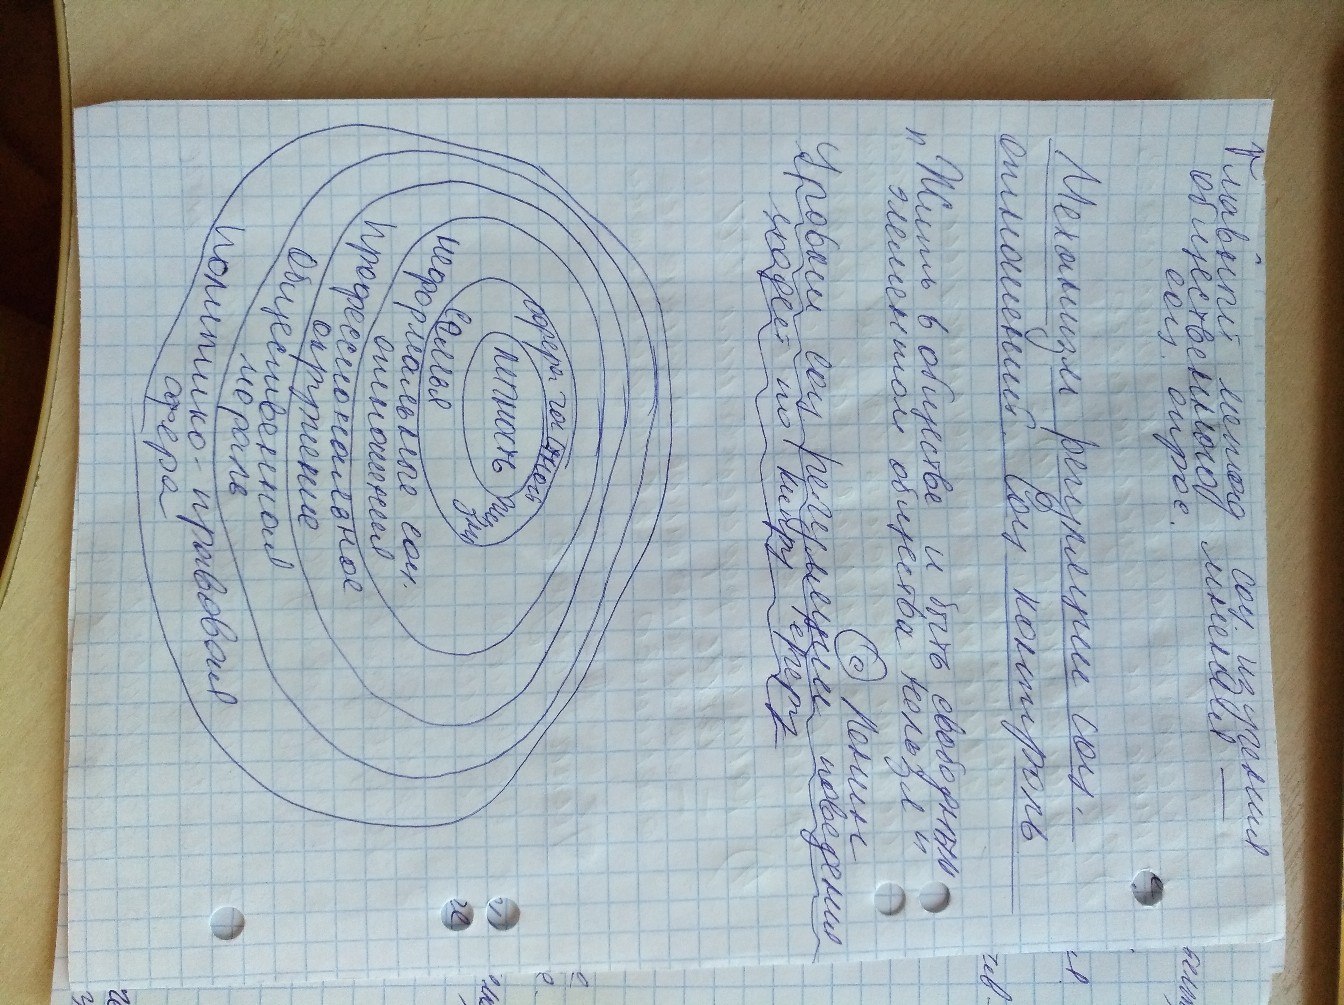 Главный метод соц. изучения
общественного мнения —
соц. опрос.
Механизм регуляции соц.
отношений. Соц контроль
"Жить в обществе и быть свободным
элементом общества нельзя"
© Ленин
Уровни соц регуляции поведения
по Питеру Бергеру
сфера частной жизни
личность
семья
неформальные соц.
отношения
Профессиональное
окружение
Общественная
мораль
Политико-правовая
сфера